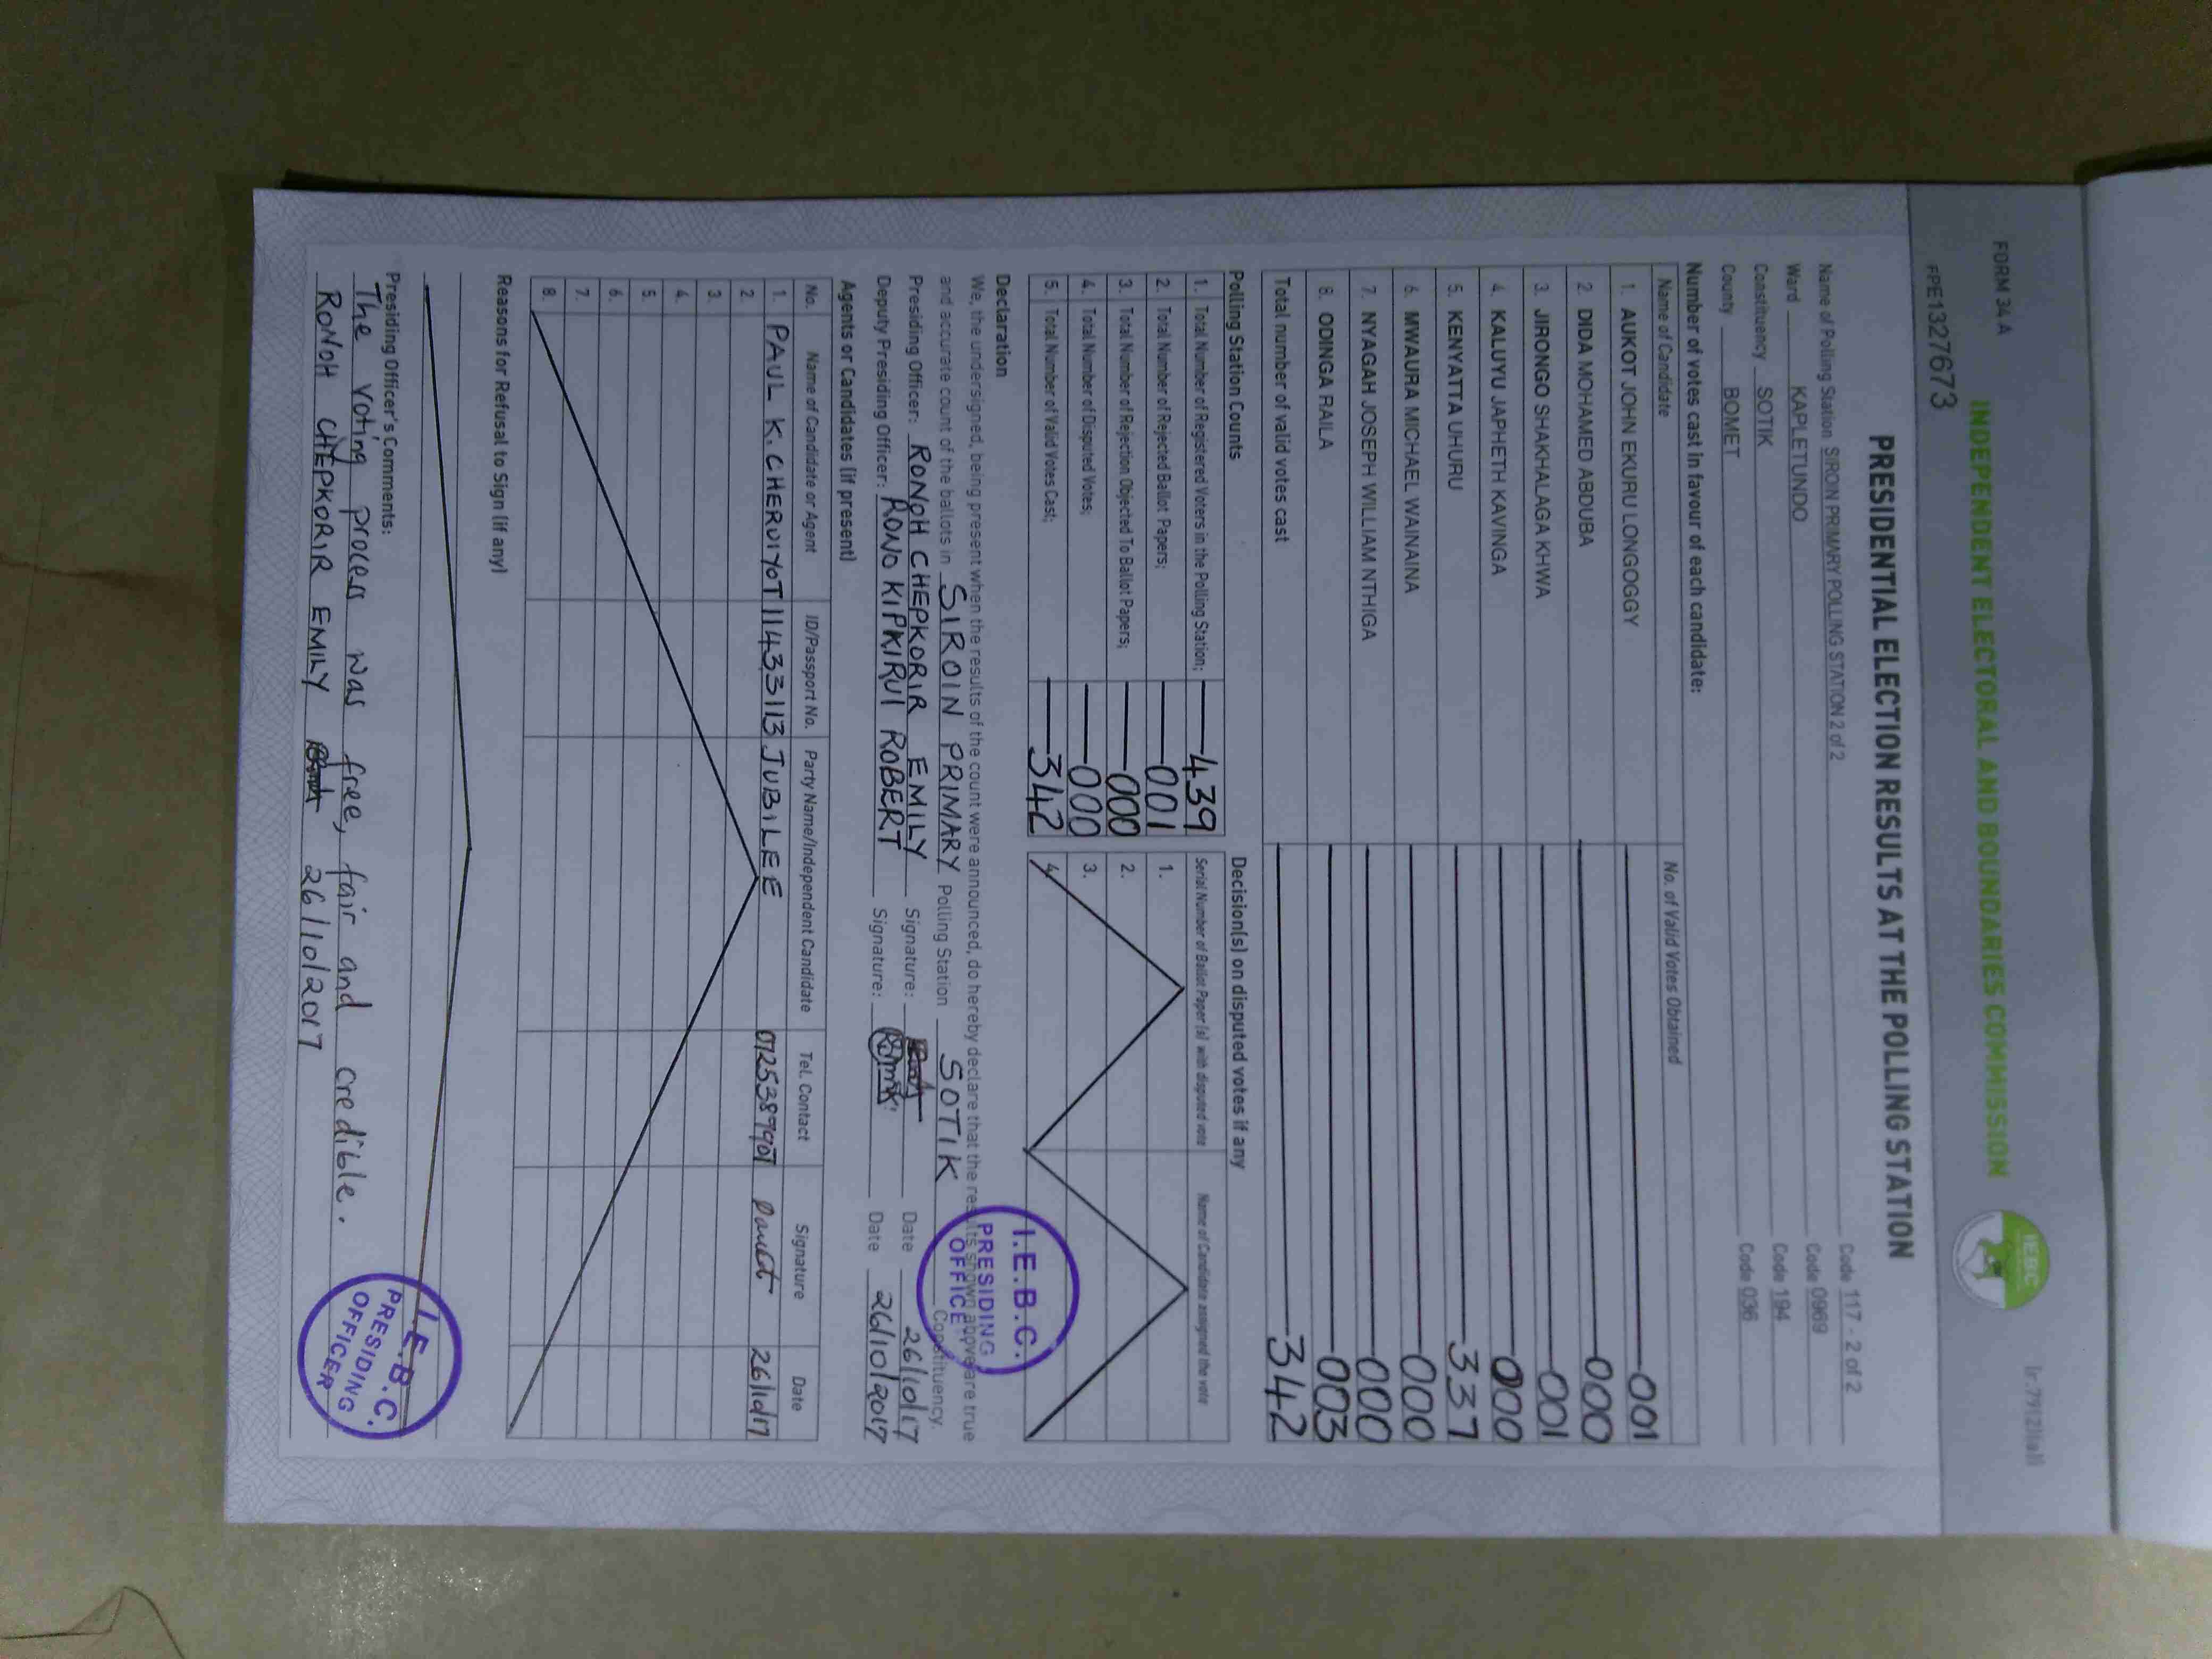 FORM 34 A
INDEPENDENT ELECTORAL AND BOUNDARIES COMMISSION
IEBC
PPE132673
PRESIDENTIAL ELECTION RESULTS AT THE POLLING STATION
Name of Polling Station SIROIN PRIMARY POLLING STATION 2 of 2 Code 117 - 2 of 2
Ward KAPLETUNDO Code 0969
Constituency SOTIK Code 194
County BOMET Code 036
Number of votes cast in favour of each candidate:
Name of Candidate No. of Valid Votes Obtained
1. AUKOT JOHN EKURU LONGOGGY 001
2. DIDA MOHAMED ABDUBA 000
3. JIRONGO SHAKHALAGA KHWA 001
4. KALUYU JAPHETH KAVINGA 000
5. KENYATTA UHURU 337
6. MWAURA MICHAEL WAINAINA 000
7. NYAGAH JOSEPH WILLIAM NTHIGA 000
8. ODINGA RAILA 003
Total number of valid votes cast 342
Polling Station Counts Decision(s) on disputed votes if any
Serial Number of Ballot Paper (s) with disputed vote Name of Candidate assigned the vote
1. Total Number of Registered Voters in the Polling Station; 439 1.
2. Total Number of Rejected Ballot Papers; 001 2.
3. Total Number of Rejection Objected To Ballot Papers; 000 3.
4. Total Number of Disputed Votes; 000 4.
5. Total Number of Valid Votes Cast; 342
Declaration
We, the undersigned, being present when the results of the count were announced, do hereby declare that the results shown above are true
and accurate count of the ballots in SIROIN PRIMARY Polling Station SOTIK Constituency.
I.E.B.C.
PRESIDING
OFFICE
Presiding Officer: RONOH CHEPKORIR EMILY Signature: Date 26/10/17
Deputy Presiding Officer: RONO KIPKIRUI ROBERT Signature: Date 26/10/2017
Agents or Candidates (if present)
No. Name of Candidate or Agent ID/Passport No. Party Name/Independent Candidate Tel. Contact Signature Date
1. PAUL K. CHERUIYOT 11433113 JUBILEE 0725389907 26/10/17
2.
3.
4.
5.
6.
7.
8.
Reasons for Refusal to Sign (if any)
Presiding Officer's Comments:
The voting process was free, fair and credible.
RONOH CHEPKORIR EMILY 26/10/2017
I.E.B.C.
PRESIDING
OFFICER